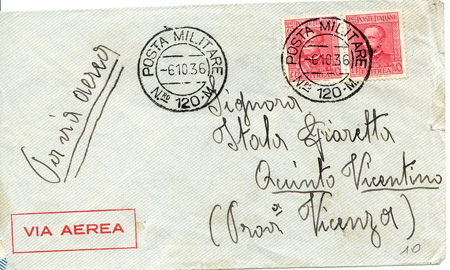 Per via aerea
POSTA MILITARE
-6 10 36
Nro 120-M.
POSTA MILITARE
-6 10 36
Nro 120-M.
POSTE ITALIANE
ERITREA
Signora
Itala Giaretta
Quinto Vicentino
(Prov. Vicenza)
VIA AEREA
10